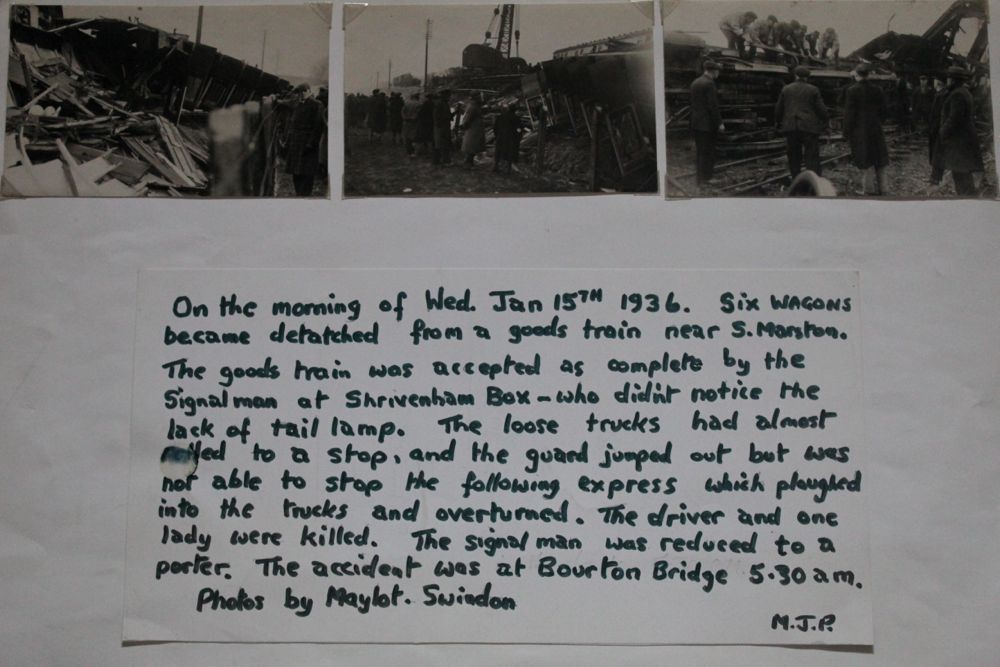 On the morning of Wed. Jan 15TH 1936. Six WAGONS
became detatched from a goods train near S. Marston.
The goods train was accepted as complete by the
Signalman at Shrivenham Box - who didn't notice the
lack of tail lamp. The loose trucks had almost
to a stop, and the guard jumped out but was
not able to stop the following express which ploughed
into the trucks and overturned. The driver and one
lady were killed. The signalman was reduced to a
porter. The accident was at Bourton Bridge 5.30 am.
Photos by Maylot. Swindon
M.J.P.